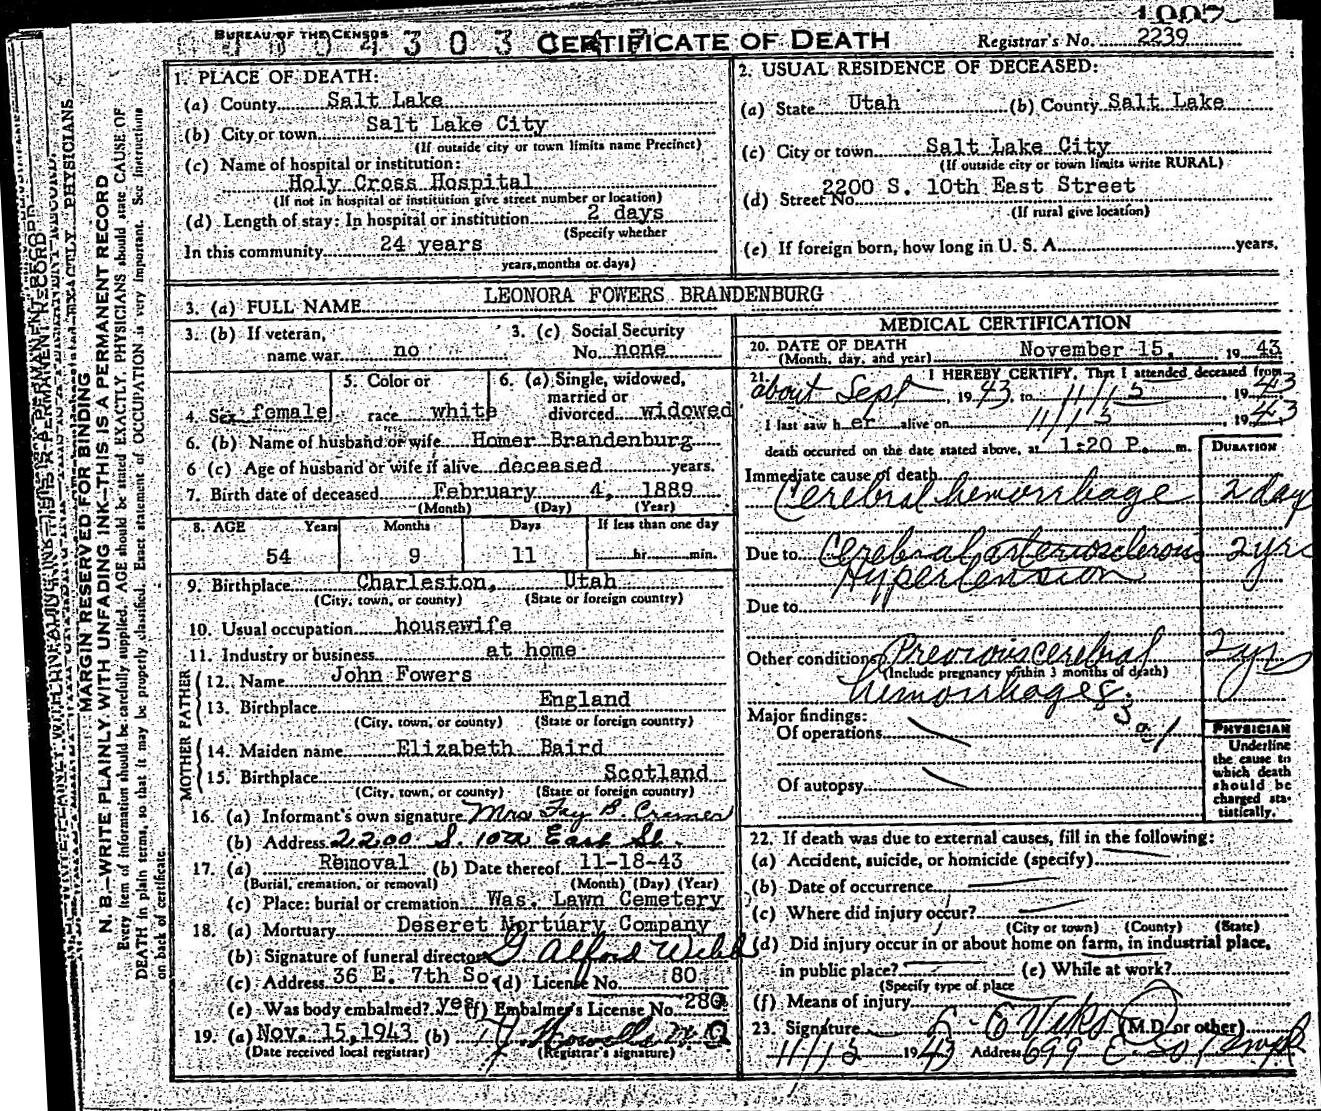 BUREAU OF THE CENSUS
CERTIFICATE OF DEATH
Registrar's No. 2239
1. PLACE OF DEATH:
(a) County Salt Lake
(b) City or town Salt Lake City
(If outside city or town limits name Precinct)
(c) Name of hospital or institution:
Holy Cross Hospital
(If not in hospital or institution give street number or location)
(d) Length of stay: In hospital or institution 2 days
(Specify whether
In this community 24 years
years, months or days)
2. USUAL RESIDENCE OF DECEASED:
(a) State Utah (b) County Salt Lake
(c) City or town Salt Lake City
(If outside city or town limits write RURAL)
(d) Street No. 2200 S. 10th East Street
(If rural give location)
(e) If foreign born, how long in U. S. A. years.
3. (a) FULL NAME LEONORA FOWERS BRANDENBURG
3. (b) If veteran, 3. (c) Social Security
name war no No. none
5. Color or 6. (a) Single, widowed,
married or
4. Sex female race white divorced widowed
6. (b) Name of husband or wife Homer Brandenburg
6 (c) Age of husband or wife if alive deceased years.
7. Birth date of deceased February 4, 1889
(Month) (Day) (Year)
8. AGE Years Months Days If less than one day
54 9 11 hr. min.
9. Birthplace Charleston, Utah
(City, town, or county) (State or foreign country)
10. Usual occupation housewife
11. Industry or business at home
FATHER
12. Name John Fowers
13. Birthplace England
(City, town, or county) (State or foreign country)
MOTHER
14. Maiden name Elizabeth Baird
15. Birthplace Scotland
(City, town, or county) (State or foreign country)
16. (a) Informant's own signature Mrs Fay B. Cremer
(b) Address 2200 S. 10th East St.
17. (a) Removal (b) Date thereof 11-18-43
(Burial, cremation, or removal) (Month) (Day) (Year)
(c) Place: burial or cremation Was. Lawn Cemetery
18. (a) Mortuary Deseret Mortuary Company
(b) Signature of funeral director G Alford Webb
(c) Address 36 E. 7th So. (d) License No. 80
(e) Was body embalmed? yes (f) Embalmer's License No. 280
19. (a) Nov. 15, 1943 (b)
(Date received local registrar) (Registrar's signature)
MEDICAL CERTIFICATION
20. DATE OF DEATH
(Month, day, and year) November 15, 1943
21. I HEREBY CERTIFY, That I attended deceased from
about Sept, 1943, to 11/15, 1943
I last saw her alive on 11/15 1943
death occurred on the date stated above, at 1:20 P. m. DURATION
Immediate cause of death
Cerebral hemorrhage 2 day
Due to Cerebral arteriosclerosis 2 yrs
Hypertension
Due to
Other conditions Previous cerebral 2 yrs
(Include pregnancy within 3 months of death)
hemorrhages.
Major findings:
Of operations
Of autopsy
PHYSICIAN
Underline
the cause to
which death
should be
charged sta-
tistically.
22. If death was due to external causes, fill in the following:
(a) Accident, suicide, or homicide (specify)
(b) Date of occurrence
(c) Where did injury occur?
(City or town) (County) (State)
(d) Did injury occur in or about home on farm, in industrial place,
in public place? (e) While at work?
(Specify type of place
(f) Means of injury
23. Signature (M.D. or other)
11/15 1943 Address 699 E. So Temple
MARGIN RESERVED FOR BINDING
N. B.—WRITE PLAINLY WITH UNFADING INK—THIS IS A PERMANENT RECORD
Every item of information should be carefully supplied. AGE should be stated EXACTLY. PHYSICIANS should state CAUSE OF
DEATH in plain terms, so that it may be properly classified. Exact statement of OCCUPATION is very important. See instructions
on back of certificate.